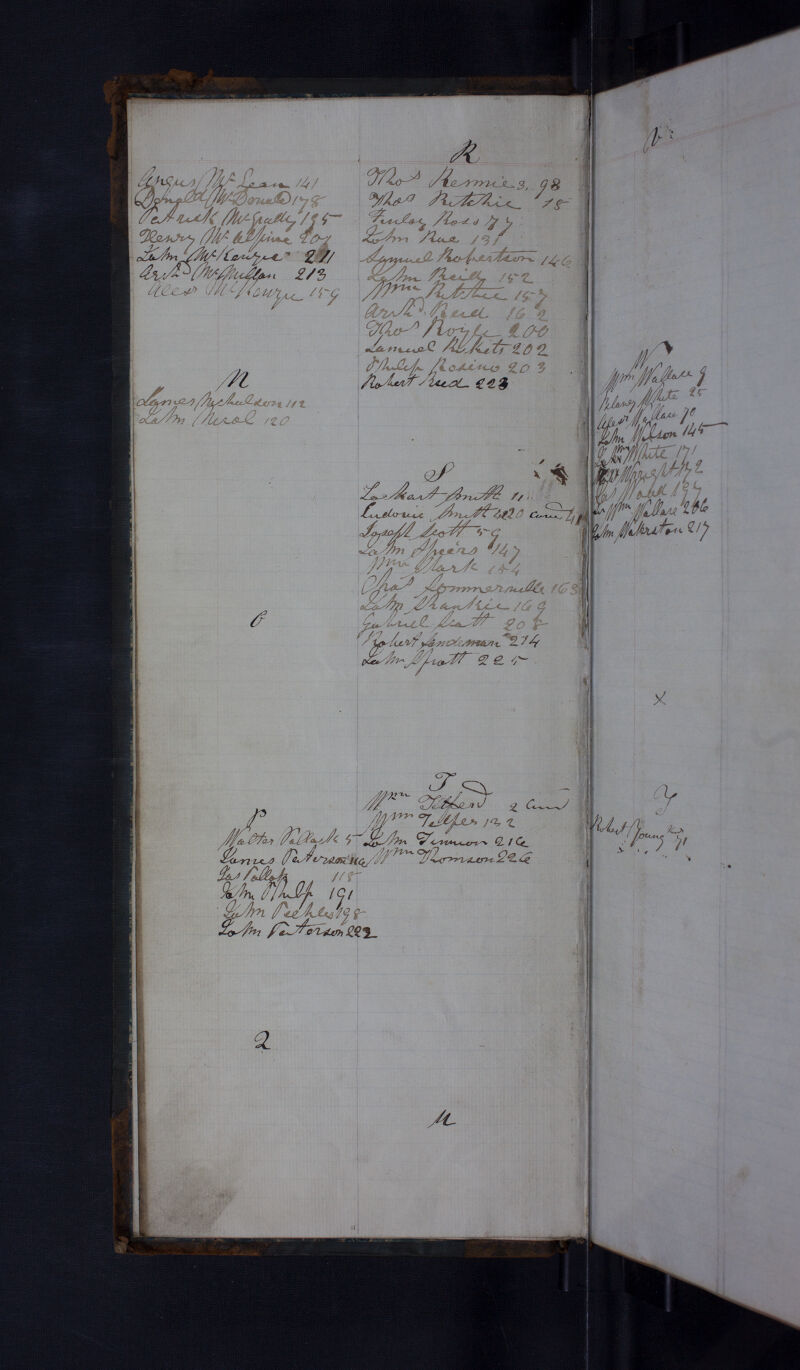 Angus McLean 141
Donald McDonald 178
Patrick McGrady 195
Henry McAlpine 201
John McKenzie 211
Archd McMillan 213
Alexr McKenzie 159
N
James Nicholson 112
John Nicol 120
O
P
Walter Pollock 5
James Paterson
Jas Pollock 118
John Philp 191
John Peebles 198
John Paterson 222
Q
R
Thos Rennie 3. 98
Thos Ritchie 18
Finlay Ross 77
John Rae 131
Samuel Robertson 146
John Reid 152
Wm Ritchie 157
Archd Reid 162
Thos Royle 200
Samuel Rickets 202
Philip Rosino 203
Robert Reid 223
S
Lockart Smith 11
Ludovic Smith
Joseph Scott 59
John Spiers 147
Wm Stark 154
Chas Sommerville 163
John Shankie 169
Gabriel Scott 208
Robert Sandeman 214
John Spratt 225
T
Wm Telferd 2
Wm Telfer 132
John Timmon 216
Wm Thomson 226
U
V
W
Wm Wallace 9
White 25
Alexr Wallace 70
John Wilson 145
White 171
Wright 172
Jas 197
Wm Wallace 206
John Waterston 217
X
Y
Robert Young 71